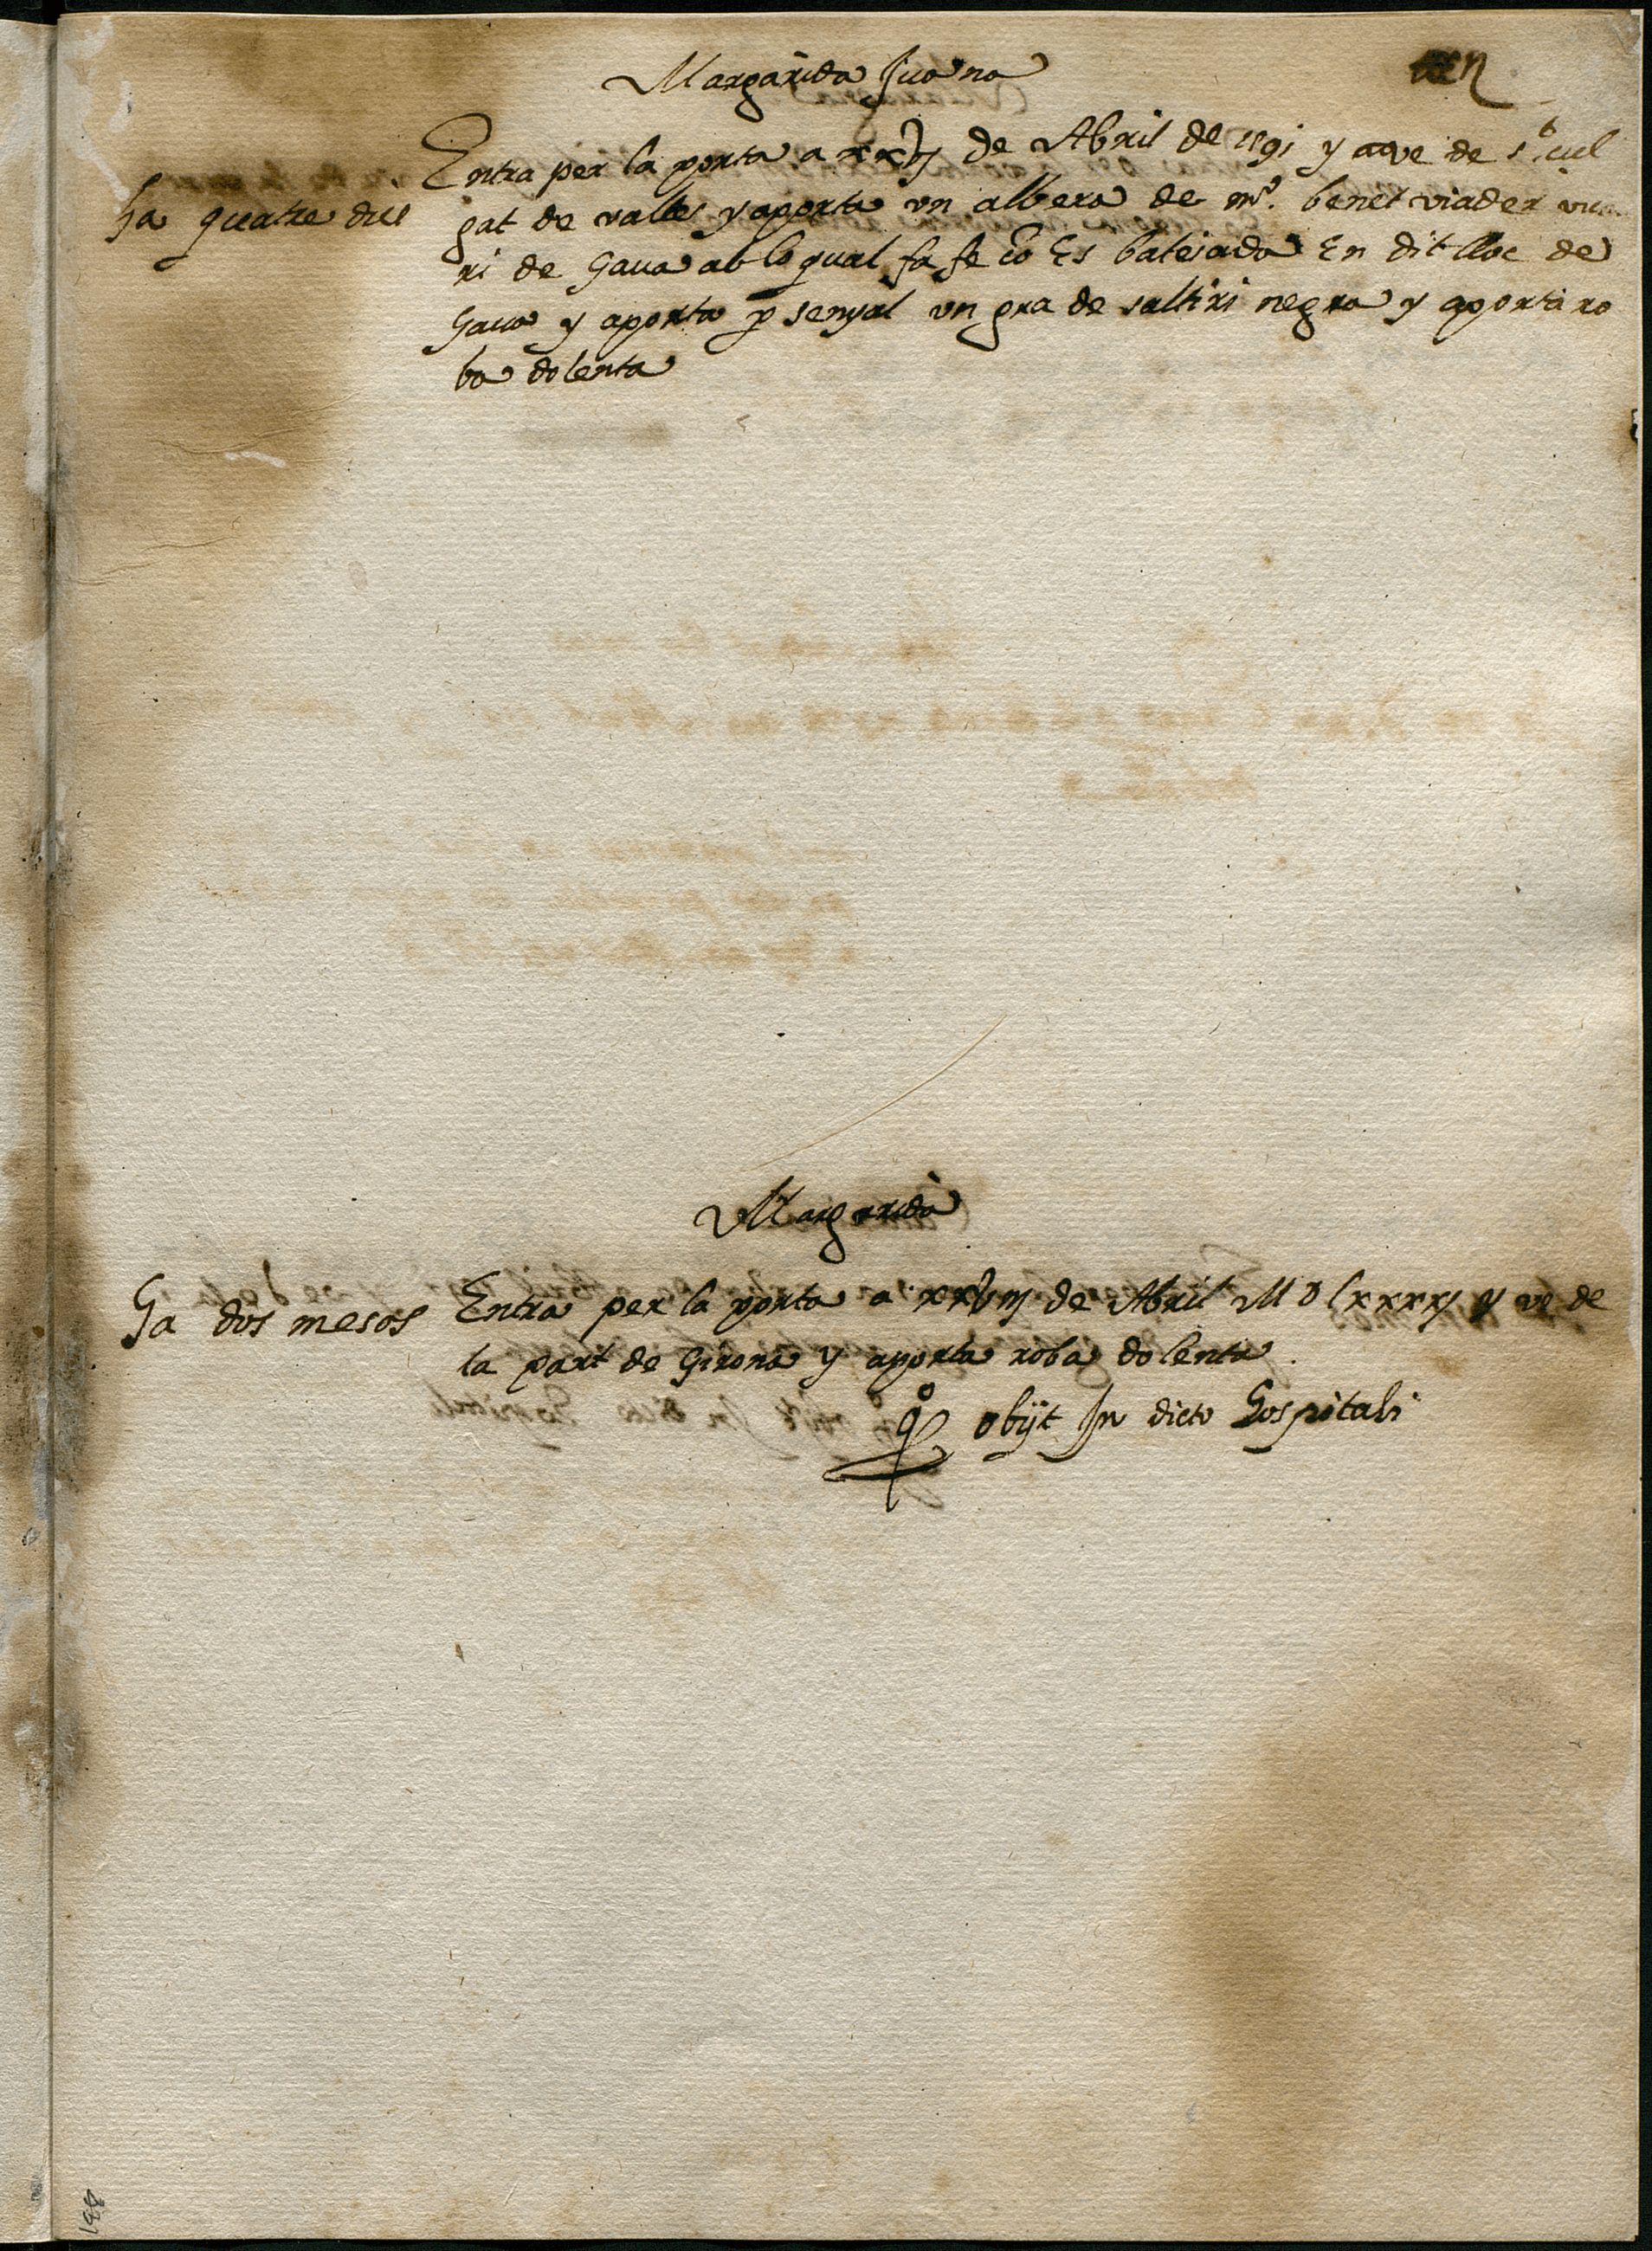 Margarida Juana
Entra per la porta a de Abril de 1591 y ave de st. cul
ha quatre dies
gat de valles y aporta un albera de mº. benet viader vica
ri de Gava ab lo qual fa fe co Es batejada En dit lloc de
Gava y aporta p senyal un gra de saltiri negra y aporta ro
ba dolenta
Margarida
Ha dos mesos
Entra per la porta a xxviij de Abril MDlxxxxj y ve de
la part de Girona y aporta roba dolenta.
obijt In dicto Hospitali